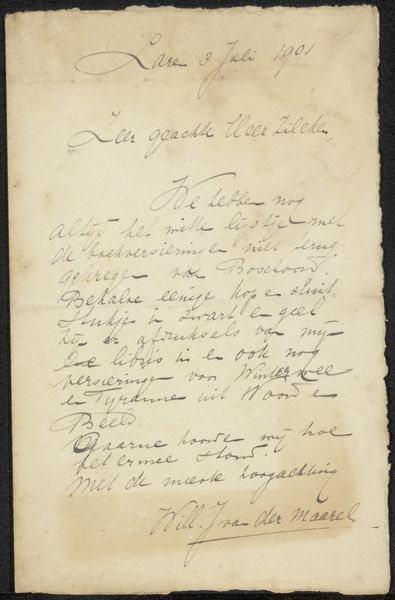 Laren 3 Juli 1901
Zeer geachte Heer Zilcken,
We hebben nog
altijd het witte lijstje met
de boekversieringen niet terug
gekregen van Boschoord.
Behalve eenige kop en sluit-
stukjes in zwart en geel
zijn er afdruksels van mijn
Ex libris in en ook nog
versieringen voor Winterwee
en Tyranne uit Woord en
Beeld.
Gaarne hoorden wij hoe
het ermee stond.
Met de meeste hoogachting
Will. J van der Maarel